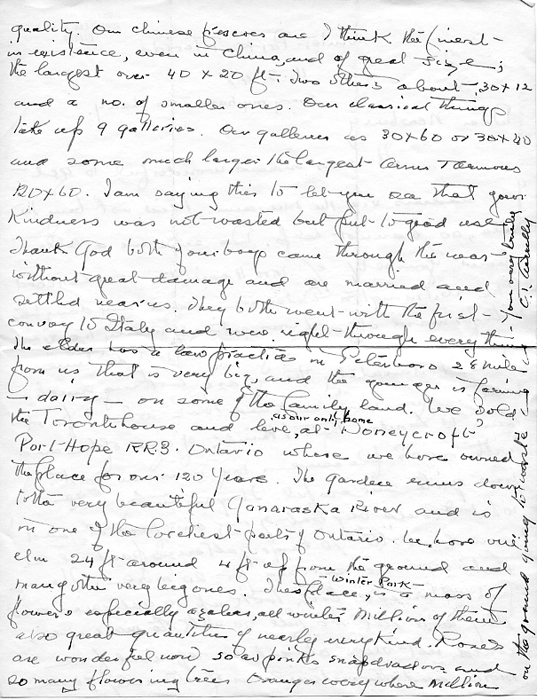 quality. Our chinese frescoes are I think the finest
in existence, even in China, and of great size;
the largest over 40 x 20 ft. Two others about 30 x 12
and a no. of smaller ones. Our classical things
take up 9 galleries. Our galleries as 30x60 or 30x40
and some much larger the largest
120x60. I am saying this to let you see that your
kindness was not wasted but put to good use
Thank God both your boys came through the war
without great damage and are married and
settled near us. They both went with the first
convoy to Italy and were right through everything
The elder has a law practice in Peterboro 28 miles
from us that is very big, and the younger is farming
- dairy - on some of the family land. We sold
the Toronto house and live, as our only home at "Honeycroft"
Port Hope RR3. Ontario where we have owned
the place for over 120 years. The garden runs down
to the very beautiful Ganaraska River and is
in one of the loveliest parts of Ontario. We have one
elm 24 ft around 4 ft up from the ground and
many other very big ones. This place, - Winter Park - is a mass of
flowers especially azaleas, all winter Millions of them
also great quantities of nearly every kind. Roses
are wonderful now so are pinks snapdragons and
so many flowering trees Oranges everywhere Millions
on the ground going to waste
Yours very truly
C. T. Currelly